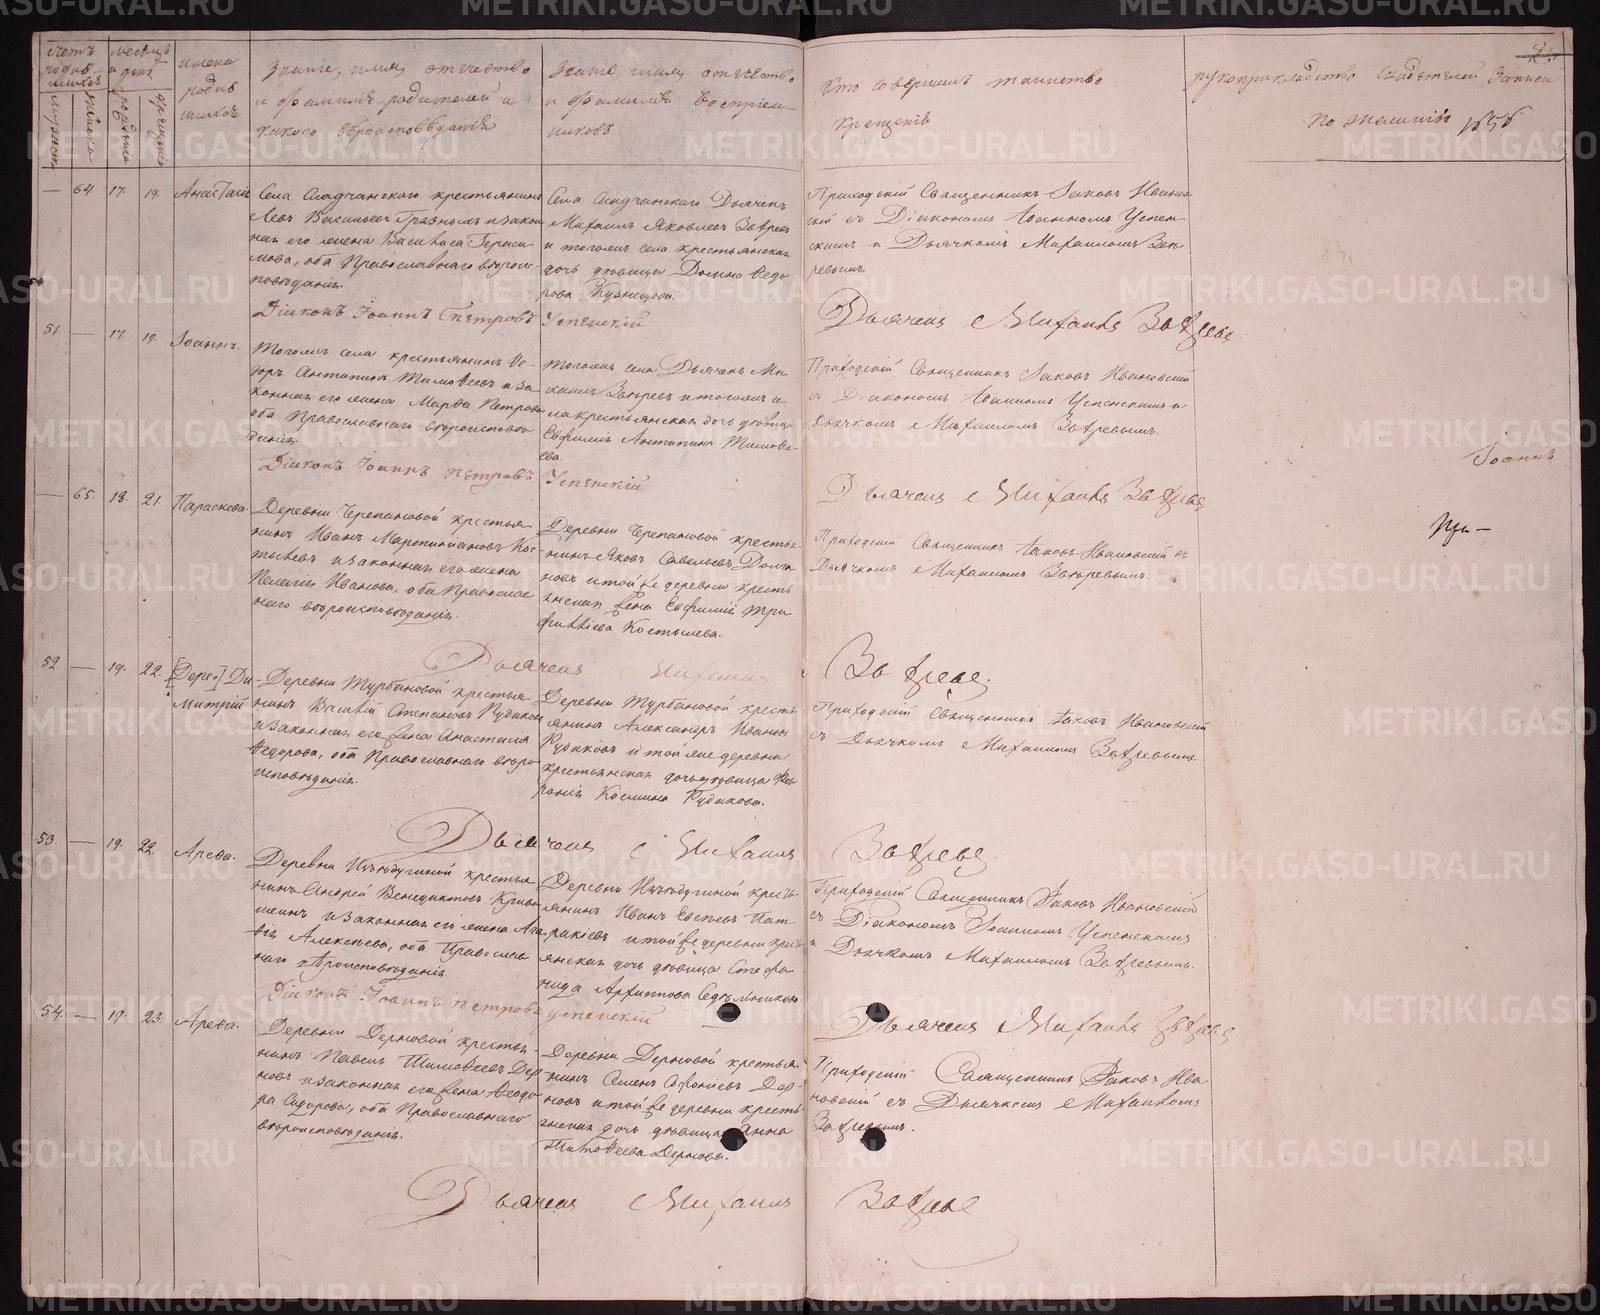 METRIKI.GASO-URAL.RU
счетъ родившихся
месяцъ и день
имена родившихся
Званіе, имя, отечество
и фамилія родителей и
какого вероисповѣданія
Званіе, имя, отчество
и фамилія восприем-
никовъ
Кто совершалъ таинство
крещенія
рукоприкладство свидетелей записи
по желанію
мужеска
женска
рожденія
крещенія
— 64. 17. 19. Анастасія
Села Сладчанскаго крестьянинъ
Левъ Васильевъ Грязныхъ и закон
ная его жена Васиlиса Гераси-
мова, оба Православнаго вероис-
повѣданія.
Села Сладчанскаго Дьячекъ
Михаилъ Яковлевъ Зверев
и тогожъ села крестьянская
дочь девица Домна Федо
рова Кузнецова.
Приходскій Священникъ Іаковъ Иванов
скій съ Діакономъ Іоанномъ Успен-
скимъ и Дьячкомъ Михаиломъ Зве-
ревымъ.
Діаконъ Іоаннъ Петровъ Успенскій
Дьячекъ Михаилъ Зверевъ
51. — 17. 19. Іоаннъ.
Тогожъ села крестьянинъ Фе-
доръ Антипинъ Тимофеевъ и за
конная его жена Марфа Петрова
оба Православнаго вероисповѣ
данія.
Тогожъ села Дьячекъ Ми
хаилъ Зверевъ и тогожъ се
ла крестьянская дочь девица
Евфимія Антипина Тимофе-
ева.
Приходскій Священникъ Іаковъ Ивановскій
съ Діакономъ Іоанномъ Успенскимъ и
Дьячкомъ Михаиломъ Зверевымъ.
Діаконъ Іоаннъ Петровъ Успенскій
Дьячекъ Михаилъ Зверевъ
Іоаннъ
— 65. 18. 21. Параскева.
Деревни Черепановой крестья
нинъ Иванъ Мартиніановъ Кос
тылевъ и законная его жена
Пелагія Иванова, оба Православ
наго вероисповѣданія.
Деревни Черепановой крестья-
нинъ Яковъ Савельевъ Долга
новъ и той же деревни кресть
янская жена Евфимія Три
фиlліева Костылева.
Приходскій Священникъ Іаковъ Ивановскій съ
Дьячкомъ Михаиломъ Зверевымъ.
Дьячекъ Михаилъ Зверевъ
52. — 19. 22. [Дере.] Ди-
митрій
Деревни Турбановой крестья
нинъ Василій Степановъ Рудаков
и законная его жена Анастасія
Федорова, оба Православнаго веро
исповѣданія.
Деревни Турбановой кресть
янинъ Александръ Ивановъ
Рудаковъ и той же деревни
крестьянская дочь девица Фев
ронія Космина Рудакова.
Приходскій Священникъ Іаковъ Ивановскій
съ Дьячкомъ Михаиломъ Зверевымъ.
Дьячекъ Михаилъ Зверевъ
53. — 19. 22. Арефа.
нинъ Андрей Венедиктовъ Криво
шеинъ и законная его жена Ага
фія Алексѣева, оба Православ
наго вѣроисповѣданія.
янинъ Иванъ
и той же деревни крест
янская дочь девица Стефа
нида Архиппова
Приходскій Священникъ Іаковъ Ивановскій
съ Діакономъ Іоанномъ Успенскимъ
и Дьячкомъ Михаиломъ Зверевымъ.
Діаконъ Іоаннъ Петровъ Успенскій
Дьячекъ Михаилъ Зверевъ
54. — 19. 23. Арефа.
Деревни Дерновой крестья-
нинъ Павелъ Тимофеевъ Дер
новъ и законная его жена Феодо
ра Сидорова, оба Православнаго
вероисповѣданія.
Деревни Дерновой крестья
нинъ Семенъ Афонасіевъ Дер-
новъ и той же деревни кресть
янская дочь девица Анна
Тимофеева Дернова.
Приходскій Священникъ Іаковъ Ива
новскій съ Дьячкомъ Михаиломъ
Зверевымъ.
Дьячекъ Михаилъ Зверевъ